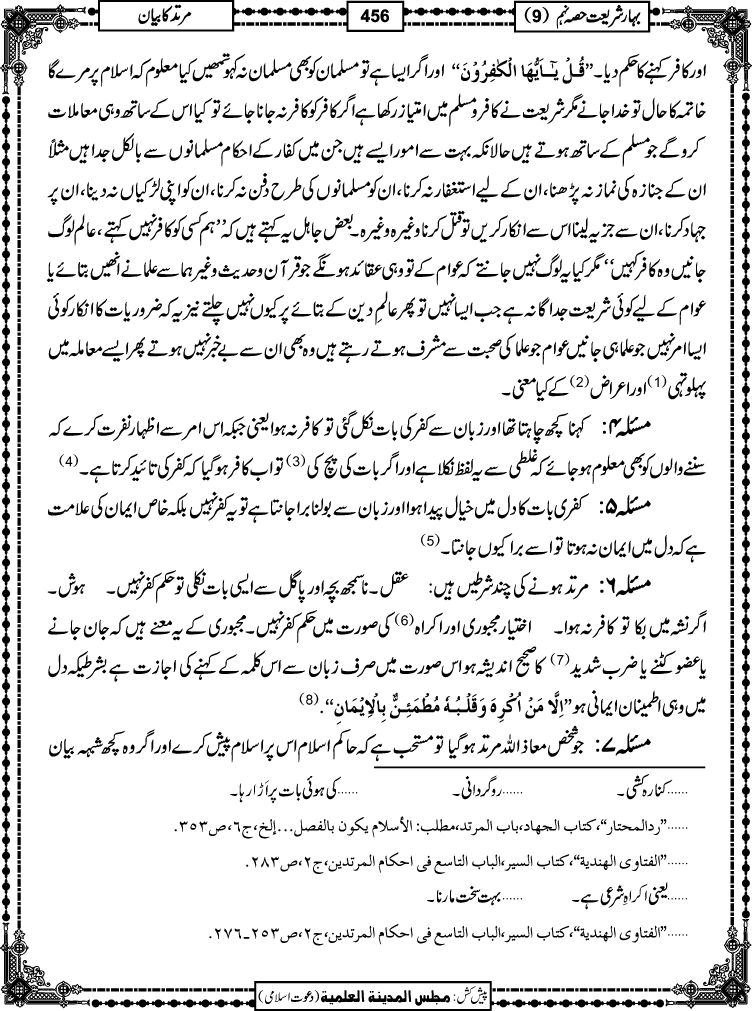 بہارِشریعت حصہ نہم (9)
456
مرتد کا بیان
اور کافر کہنے کا حکم دیا۔ ”قُلْ یٰۤاَیُّهَا الْكٰفِرُوْنَ“ اور اگر ایسا ہے تو مسلمان کو بھی مسلمان نہ کہو تمھیں کیا معلوم کہ اسلام پر مرے گا
خاتمہ کا حال تو خدا جانے مگر شریعت نے کافر و مسلم میں امتیاز رکھا ہے اگر کافر کو کافر نہ جانا جائے تو کیا اس کے ساتھ وہی معاملات
کرو گے جو مسلم کے ساتھ ہوتے ہیں حالانکہ بہت سے امور ایسے ہیں جن میں کفار کے احکام مسلمانوں سے بالکل جدا ہیں مثلاً
ان کے جنازہ کی نماز نہ پڑھنا، ان کے لیے استغفار نہ کرنا، ان کو مسلمانوں کی طرح دفن نہ کرنا، ان کو اپنی لڑکیاں نہ دینا، ان پر
جہاد کرنا، ان سے جزیہ لینا اس سے انکار کریں تو قتل کرنا وغیرہ وغیرہ۔ بعض جاہل یہ کہتے ہیں کہ ”ہم کسی کو کافر نہیں کہتے، عالم لوگ
جانیں وہ کافر کہیں“ مگر کیا یہ لوگ نہیں جانتے کہ عوام کے تو وہی عقائد ہونگے جو قرآن و حدیث وغیرہما سے علما نے انھیں بتائے یا
عوام کے لیے کوئی شریعت جداگانہ ہے جب ایسا نہیں تو پھر عالمِ دین کے بتائے پر کیوں نہیں چلتے نیز یہ کہ ضروریات کا انکار کوئی
ایسا امر نہیں جو علما ہی جانیں عوام جو علما کی صحبت سے مشرف ہوتے رہتے ہیں وہ بھی ان سے بے خبر نہیں ہوتے پھر ایسے معاملہ میں
پہلو تہی (1) اور اعراض (2) کے کیا معنی۔
مسئلہ ۴: کہنا کچھ چاہتا تھا اور زبان سے کفر کی بات نکل گئی تو کافر نہ ہوا یعنی جبکہ اس امر سے اظہارِ نفرت کرے کہ
سننے والوں کو بھی معلوم ہو جائے کہ غلطی سے یہ لفظ نکلا ہے اور اگر بات کی پچ کی (3) تو اب کافر ہو گیا کہ کفر کی تائید کرتا ہے۔ (4)
مسئلہ ۵: کفری بات کا دل میں خیال پیدا ہوا اور زبان سے بولنا برا جانتا ہے تو یہ کفر نہیں بلکہ خاص ایمان کی علامت
ہے کہ دل میں ایمان نہ ہوتا تو اسے برا کیوں جانتا۔ (5)
مسئلہ ۶: مرتد ہونے کی چند شرطیں ہیں: عقل۔ ناسمجھ بچہ اور پاگل سے ایسی بات نکلی تو حکمِ کفر نہیں۔ ہوش۔
اگر نشہ میں بکا تو کافر نہ ہوا۔ اختیار مجبوری اور اکراہ (6) کی صورت میں حکمِ کفر نہیں۔ مجبوری کے یہ معنے ہیں کہ جان جانے
یا عضو کٹنے یا ضرب شدید (7) کا صحیح اندیشہ ہو اس صورت میں صرف زبان سے اس کلمہ کے کہنے کی اجازت ہے بشرطیکہ دل
میں وہی اطمینان ایمانی ہو ”اِلَّا مَنْ اُكْرِهَ وَ قَلْبُهٗ مُطْمَىِٕنٌّۢ بِالْاِیْمَانِ“۔ (8)
مسئلہ ۷: جو شخص معاذ اللہ مرتد ہو گیا تو مستحب ہے کہ حاکمِ اسلام اس پر اسلام پیش کرے اور اگر وہ کچھ شبہہ بیان
......کنارہ کشی۔ ......روگردانی۔ ......کی ہوئی بات پر اَڑا رہا۔
......”ردالمحتار“، کتاب الجهاد، باب المرتد، مطلب: الأسلام یکون بالفصل...إلخ، ج۶، ص۳۵۳.
......”الفتاوی الهندیة“، کتاب السیر، الباب التاسع فی احکام المرتدین، ج۲، ص۲۸۳.
......یعنی اکراہِ شرعی ہے۔ ......بہت سخت مارنا۔
......”الفتاوی الهندیة“، کتاب السیر، الباب التاسع فی احکام المرتدین، ج۲، ص۲۵۳-۲۷۶.
پیش کش: مجلس المدینة العلمیة (دعوت اسلامی)